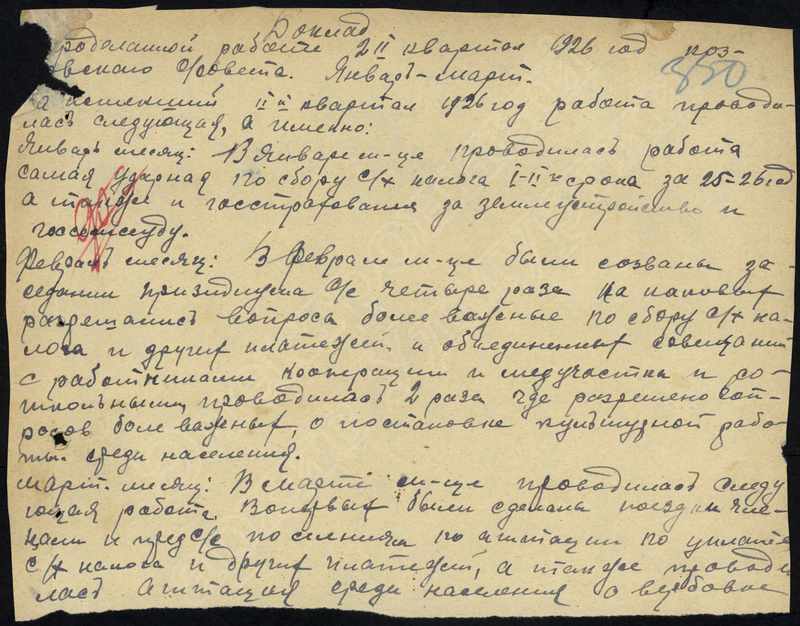 Доклад
проделанной работе 2 II квартал 1926 год поз-
вского С/совета. Январь-март.
350
За истекший II й квартал 1926 год работа проводи-
лась следующая, а именно:
Январь месяц: В Январе м-це проводилась работа
самая ударная по сбору с/х налога I-II го срока за 25-26 год
а также и госстрахования за землеустройство и
госсемссуду.
Февраль месяц: В Феврале м-це были созваны за-
седании призидиума С/с четыре раза на каковых
разрешались вопроса более важные по сбору с/х на-
лога и других платежей и объединенных совещаний
с работниками кооперации и медучастка и со
школьными проводилась 2 раза где разрешено воп-
росов боле важных, о постановке культурной рабо-
ты среди населения.
Март месяц: В марте м-це проводилась следу
ющая работа, Вопервых были сделаны поездки чле-
нами и пред с/с по селениям по агитации по уплате
с/х налога и других платежей, а также проводи
лась агитация среди населения о вербовке